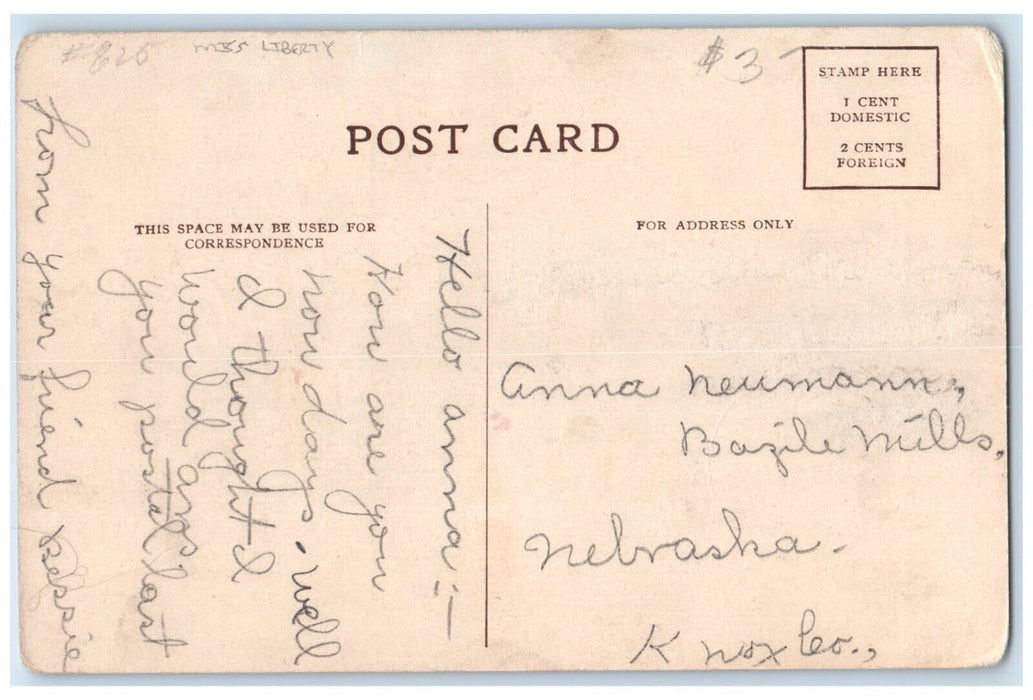 MISS LIBERTY
$3
STAMP HERE
1 CENT
DOMESTIC
2 CENTS
FOREIGN
POST CARD
THIS SPACE MAY BE USED FOR
CORRESPONDENCE
FOR ADDRESS ONLY
Hello anna:—
How are you
now days. well
I thought I
would ans
you postal last
from your friend Bessie
Anna Neumann,
Bazile Mills,
Nebraska.
Knox Co.,